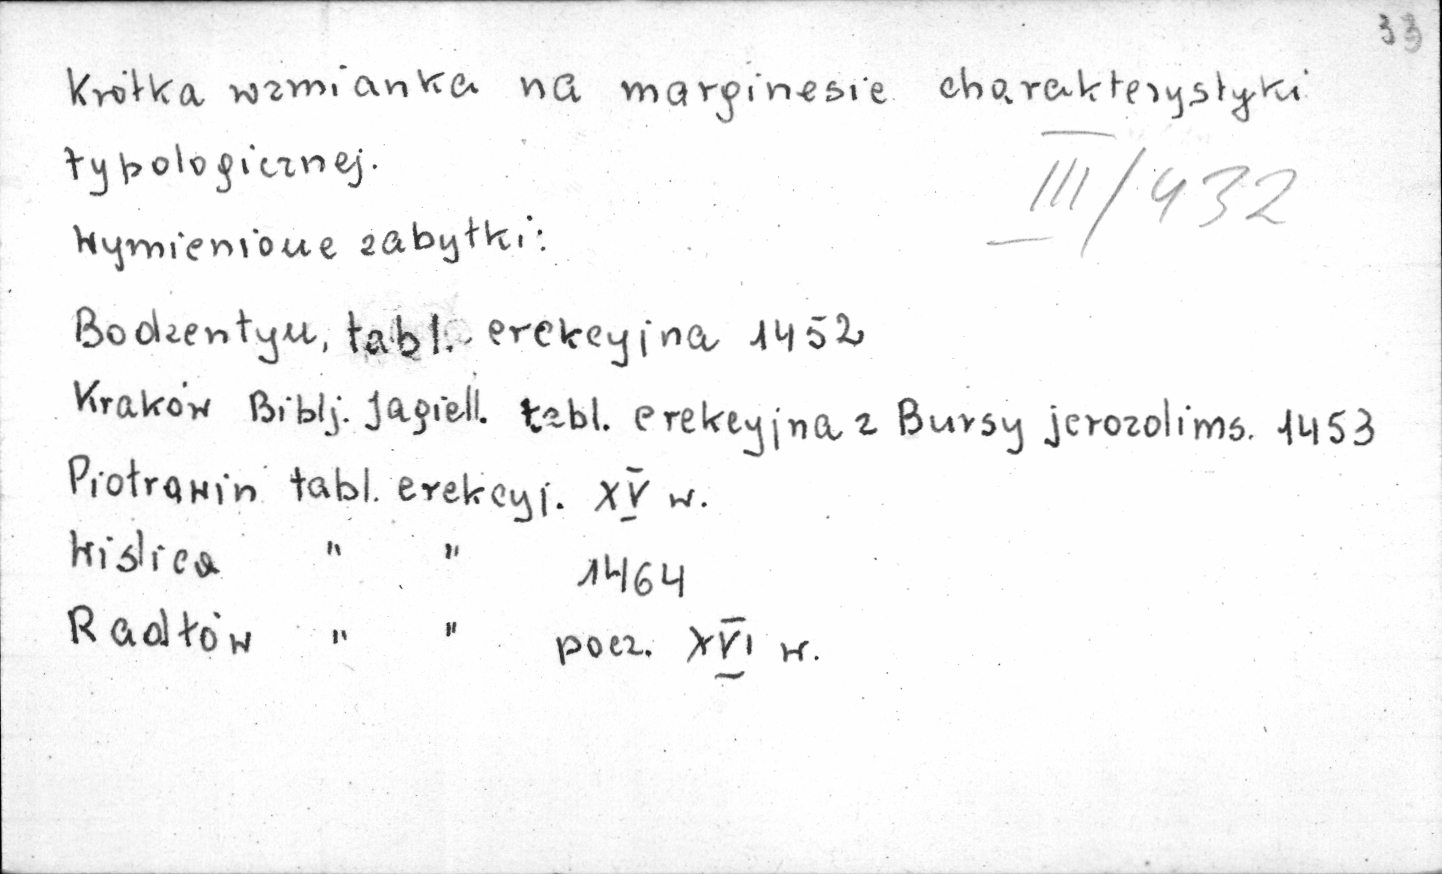 33
Krótka wzmianka na marginesie charakterystyki
typologicznej.
III/432
Wymienione zabytki:
Bodzentyn, tabl. erekcyjna 1452
Kraków Biblj. Jagiell. tabl. erekcyjna z Bursy jerozolims. 1453
Piotrawin tabl. erekcyj. XV w.
Wiślica " " 1464
Radłów " " pocz. XVI w.